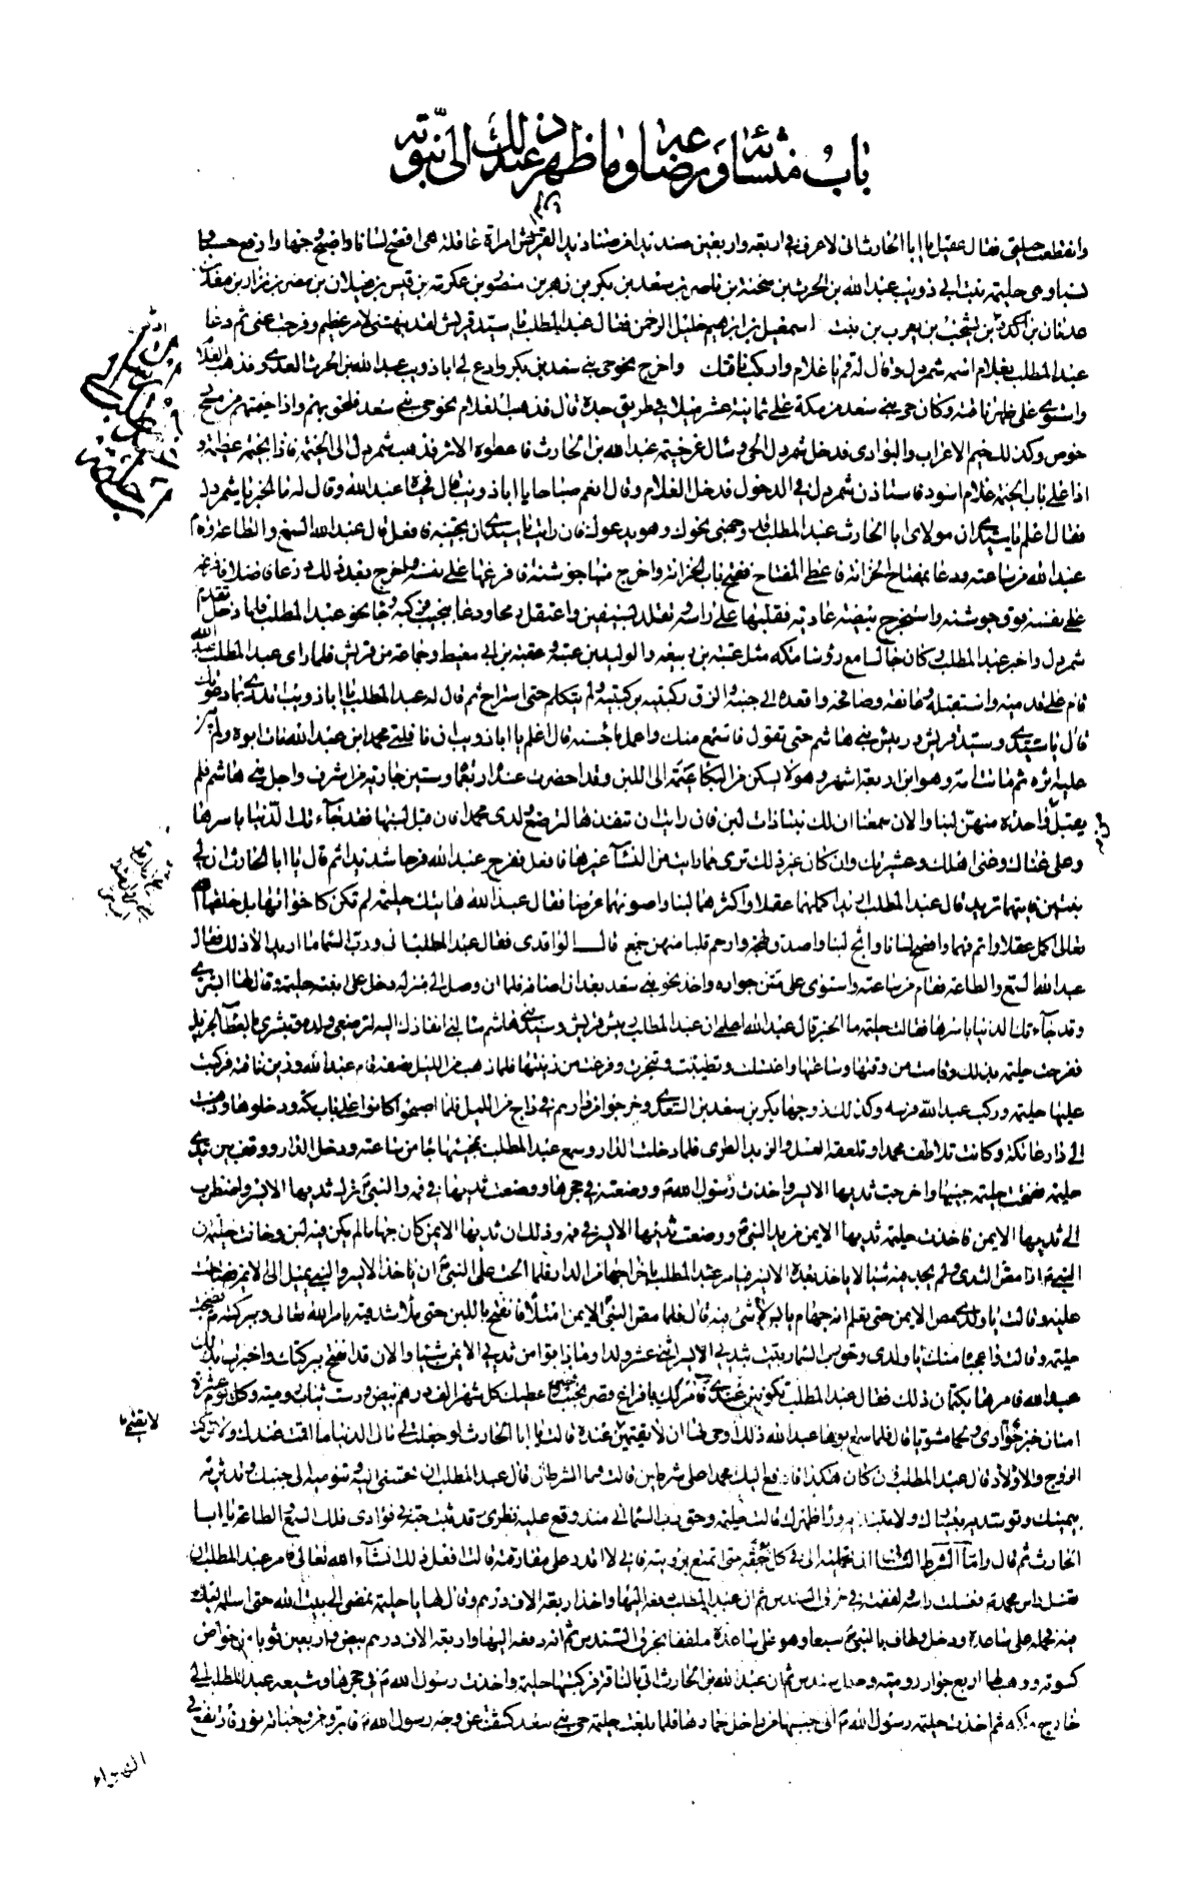 باب منشائه ورضاعه وما ظهر عند ذلك الى نبوته
وانقطعت حيلتي فقال عقيل يا ابا الحارث اني لاعرف في اربعة واربعين صنديدا من صناديد القريش امراة عاقلة هي افصح لسانا واصبح وجها وارفع حسبا و
نسبا وهي حليمة بنت ابي ذويب عبد الله بن الحرث بن سخنة بن ناصر بن سعد بن بكر بن زهر بن منصور بن عكرمة بن قيس بن غيلان بن مضر بن نزار بن معد بن
عدنان بن اكدد بن يشخب بن يعرب بن نبت اسمعيل بن ابراهيم خليل الرحمن فقال عبد المطلب يا سيد قريش لقد نبهتني لامر عظيم وفرجت عني ثم دعا
عبد المطلب بغلام اسمه شمردل وقال له قم يا غلام واركب ناقتك واخرج نحو حي بني سعد بن بكر وادع لي ابا ذويب عبد الله بن الحرث العدوي فذهب الغلام
واستوى على ظهر ناقته وكان حي بني سعد من مكة على ثمانية عشر ميلا في طريق جدة قال فذهب الغلام نحو حي بني سعد فلحق بهم واذا خيمتهم من مسح
خوص وكذلك خيم الاعراب والبوادى فدخل شمردل الحي وسال عن خيمة عبد الله بن الحارث فاعطوه الاثر فذهب شمردل الى الخيمة فاذا بخيمة عظيمة و
اذا على باب الخيمة غلام اسود فاستاذن شمردل في الدخول فدخل الغلام وقال انعم صباحا يا ابا ذويب قال فحياه عبد الله وقال له ما الخبر يا شمردل
فقال اعلم يا سيدي ان مولاي ابا الحارث عبد المطلب قد وجهني نحوك وهو يدعوك فان رايت يا سيدي ان تجيبه فافعل قال عبد الله السمع والطاعة وقام
عبد الله من ساعته ودعا بمفتاح الخزانة فاعطي المفتاح ففتح باب الخزانة واخرج منها جوشنه فافرغها على نفسه واخرج بعد ذلك درعا فاضلا فافرغه
على نفسه فوق جوشنه واستخرج بيضة عادية فقلبها على راسه وتقلد بسيفين واعتقل رمحا ودعا بنجيب فركبه وجاء نحو عبد المطلب فلما دخل تقدم
شمردل واخبر عبد المطلب وكان جالسا مع رؤسا مكة مثل عتبة بن ربيعة والوليد بن عتبة وعقبة بن ابي معيط وجماعة من قريش فلما راى عبد المطلب عبد الله
قام على قدميه واستقبله وعانقه وصافحه واقعده الى جنبه والزق ركبتيه بركبتيه ولم يتكلم حتى استراح ثم قال له عبد المطلب يا ابا ذويب اتدري بما دعوتك
قال يا سيدي وسيد قريش ورئيس بني هاشم حتى تقول فاسمع منك واعمل باحسنه قال اعلم يا ابا ذويب ان نافلتي محمد ابن عبد الله مات ابوه ولم يبن
عليه اثره ثم ماتت امه وهو ابن اربعة اشهر وهو لا يسكن من البكا عيمة الى اللبن وقد احضرت عنده اربعما وستين جارية من اشرف واجل بني هاشم فلم
يقبل واحدة منهن لبنا والان سمعنا ان لك بنتا ذات لبن فان رايت ان تنفذها لترضع ولدي محمدا فان قبل لبنها فقد جاءتك الدنيا باسرها
وعلي غناك وغنى اهلك وعشيرتك وان كان غير ذلك ترى مما رايت من النساء غيرها فافعل ففرح عبد الله فرحا شديدا ثم قال يا ابا الحارث ان لي
بنتين فايتهما تريد قال عبد المطلب اريد اكملهما عقلا واكثرهما لبنا واصونهما عرضا فقال عبد الله هاتيك حليمة لم تكن كاخواتها بل خلقها الله
تعالى اكمل عقلا واتم فهما وافصح لسانا واثج لبنا واصدق لهجة وارحم قلبا منهن جمع قال الواقدى فقال عبد المطلب اني ورب السما ما اريد الا ذلك فقال
عبد الله السمع والطاعة فقام من ساعته واستوى على متن جواده واخذ نحو بني سعد بعد ان اضافه فلما ان وصل الى منزله دخل على ابنته حليمة وقال لها ابشري
وقد جاءتك الدنيا باسرها فقالت حليمة ما الخبر قال عبد الله اعلمي ان عبد المطلب رئيس قريش وسيد بني هاشم سالني انفاذك اليه لترضعي ولده وتبشري بالعطا الجزيل
ففرحت حليمة بذلك وقامت من وقتها وساعتها واغتسلت وتطيبت وتبخرت وفرغت من زينتها فلما ذهب من الليل نصفه قام عبد الله وزين ناقته فركبت
عليها حليمة وركب عبد الله فرسه وكذلك زوجها بكر بن سعد بن السعدي وخرجوا من دارهم في داج من الليل فلما اصبحوا كانوا على باب مكة ودخلوها وذهبت
الى دار عاتكة وكانت تلاطف محمدا وتلعقه العسل والزبد الطرى فلما دخلت الدار وسمع عبد المطلب بمجيئها جا من ساعته ودخل الدار ووقف بين يدي
حليمة ففتحت حليمة جيبها واخرجت ثديها الايسر واخذت رسول الله م ووضعته في حجرها ووضعت ثديها في فمه والنبي م ترك ثديها الايسر واضطرب
الى ثديها الايمن فاخذت حليمة ثديها الايمن من يد النبي م ووضعت ثديها الايسر في فمه وذلك ان ثديها الايمن كان جهاما لم يكن فيه لبن وخافت حليمة ان
النبي م اذا مص الثدي ولم يجد فيه شيئا لا ياخذ بعده الايسر فيامر عبد المطلب باخراجها من الدار فلما الحت على النبي م ان ياخذ الايسر والنبي يميل الى الايمن فصاحت
عليه وقالت يا ولدي مص الايمن حتى تعلم انه جهام يابس لا شئ فيه قال فلما مص النبي الايمن امتلا فانفتح باللبن حتى ملا شدقيه بامر الله تعالى وببركته فصحت
حليمة وقالت واعجبا منك يا ولدي وحق رب السما ربيت بثديي الايسر اثنى عشر ولدا وما ذاقوا من ثديي الايمن شيئا والان قد انفتح ببركتك واخبرت بذلك
عبد الله فامرها بكتمان ذلك فقال عبد المطلب تكونين عندي فآمر لك بافراغ قصر بجنب قصري واعطيك كل شهر الف درهم بيض ودست ثياب رومية وكل يوم عشرة
امنان خبز حوارى ولحما مشويا قال فلما سمع ابوها عبد الله ذلك اوحى لها ان لا تقيمين عنده قالت يا ابا الحارث لو جعلت لي مال الدنيا ما اقمت عندك ولا تركت
الزوج والاولاد قال عبد المطلب ان كان هكذا فادفع اليك محمدا على شرطين قالت وما الشرطان قال عبد المطلب ان تحسني اليه وتنوميه الى جنبك وتدثريه
بيمينك وتوسديه بيسارك ولا تنبذيه وراء ظهرك قالت حليمة وحق رب السما اني منذ وقع عليه نظري قد ثبت حبه في فؤادى فلك السمع والطاعة يا ابا
الحارث ثم قال واما الشرط الثاني ان تحمليه الي في كل جمعة حتى اتمتع برؤيته فاني لا اقدر على مفارقته قالت افعل ذلك انشاء الله تعالى فامر عبد المطلب ان
تغسل راس محمد م فغسلت راسه ولففته في خرق السندس ثم ان عبد المطلب دفعه اليها واخذ اربعة الاف درهم وقال لها يا حليمة نمضي الى بيت الله حتى اسلمه اليك
فيه فحمله على ساعده ودخل وطاف بالنبي م سبعا وهو على ساعده ملففا بخرق السندس ثم انه دفعه اليها واربعة الاف درهم بيض واربعين ثوبا من خواص
كسوته ووهب لها اربع جوار رومية وحلل سندس ثم ان عبد الله بن الحارث اتى بالناقة فركبتها حليمة واخذت رسول الله م في حجرها وشيعه عبد المطلب الى
خارج مكة ثم اخذت حليمة رسول الله م الى جنبها من داخل خمارها فلما بلغت حليمة حي بني سعد كشفت عن وجه رسول الله م فابرق من وجناته نور فارتفع في
لا تقيمي